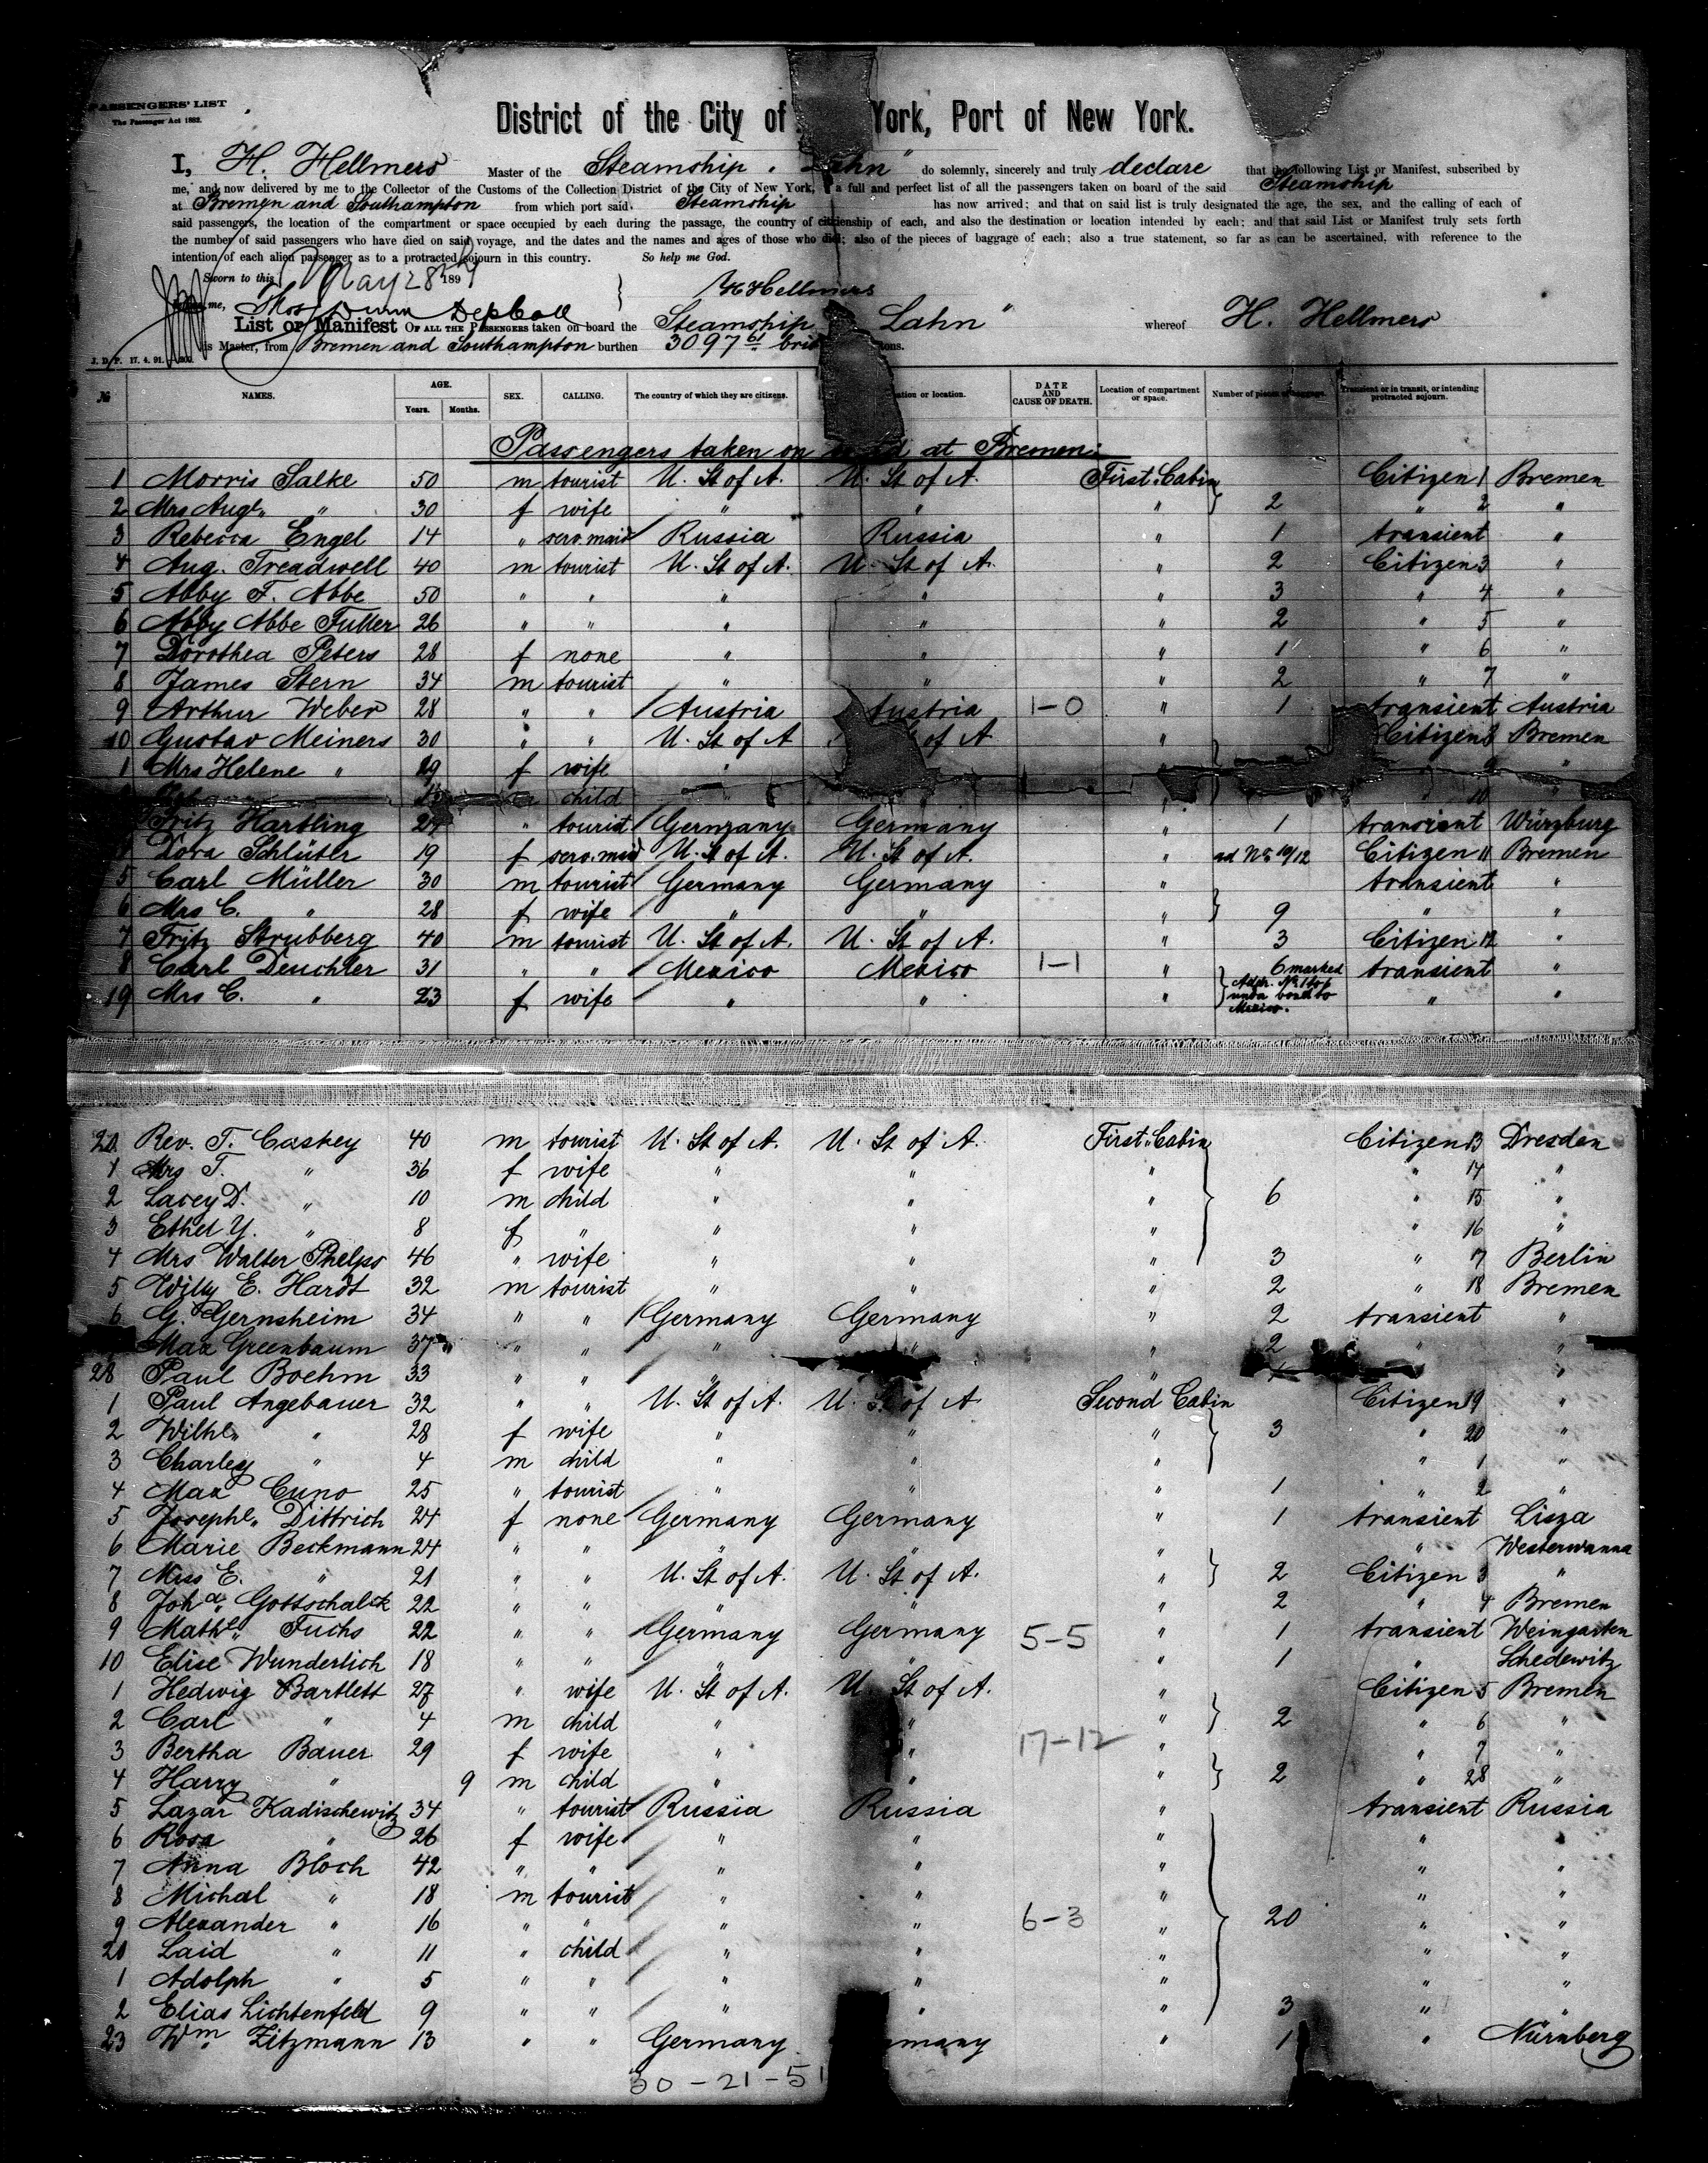 PASSENGERS' LIST
The Passenger Act 1882.
District of the City of York, Port of New York.
I, H. Hellmers Master of the Steamship " Lahn" do solemnly, sincerely and truly declare that the following List or Manifest, subscribed by
me, and now delivered by me to the Collector of the Customs of the Collection District of the City of New York, a full and perfect list of all the passengers taken on board of the said Steamship
at Bremen and Southampton from which port said Steamship has now arrived; and that on said list is truly designated the age, the sex, and the calling of each of
said passengers, the location of the compartment or space occupied by each during the passage, the country of citizenship of each, and also the destination or location intended by each; and that said List or Manifest truly sets forth
the number of said passengers who have died on said voyage, and the dates and the names and ages of those who died; also of the pieces of baggage of each; also a true statement, so far as can be ascertained, with reference to the
intention of each alien passenger as to a protracted sojourn in this country. So help me God.
Sworn to this May 28th 189
me, Thos Dunn Dep Coll } H Hellmers
List or Manifest OF ALL THE PASSENGERS taken on board the Steamship Lahn" whereof H. Hellmers
is Master, from Bremen and Southampton burthen 3097 61 tons.
J. D. P. 17. 4. 91.
№ NAMES. AGE. Years. Months. SEX. CALLING. The country of which they are citizens. ation or location. DATE AND CAUSE OF DEATH. Location of compartment or space. Number of pieces of baggage. Transient or in transit, or intending protracted sojourn.
Passengers taken on at Bremen:
1 Morris Salke 50 m tourist U. St of A. U. St of A. First Cabin Citizen 1 Bremen
2 Mrs Augte " 30 f wife " " " } 2 " 2 "
3 Rebecca Engel 14 " serv. maid Russia Russia " 1 transient "
4 Aug. Treadwell 40 m tourist U. St of A. U. St of A. " 2 Citizen 3 "
5 Abby F. Abbe 50 " " " " " 3 " 4 "
6 Abby Abbe Fuller 26 " " " " " 2 " 5 "
7 Dorothea Peters 28 f none " " " 1 " 6 "
8 James Stern 34 m tourist " " " 2 " 7 "
9 Arthur Weber 28 " " Austria Austria 1-0 " 1 transient Austria
10 Gustav Meiners 30 " " U. St of A of A " Citizen 8 Bremen
1 Mrs Helene " 29 f wife " " "
child " 10
Fritz Hartling 27 " tourist Germany Germany " 1 transient Würzburg
Dora Schlüter 19 f serv. maid U. St of A. U. St of A. " ad No 10/12 Citizen 11 Bremen
5 Carl Müller 30 m tourist Germany Germany " transient "
6 Mrs C. " 28 f wife " " " } 9 " "
7 Fritz Strubberg 40 m tourist U. St of A. U. St of A. " 3 Citizen 12 "
8 Carl Deuchler 31 " " Mexico Mexico 1-1 " 6 marked transient "
19 Mrs C. " 23 f wife " " " } Adr. No 1 to 6 under bond to Mexico. " "
20 Rev. T. Caskey 40 m tourist U. St of A. U. St of A. First Cabin Citizen 13 Dresden
1 Mrs T. " 36 f wife " " " " 14 "
2 Lacey D. " 10 m child " " " } 6 " 15 "
3 Ethel Y. " 8 f " " " " " 16 "
4 Mrs Walter Phelps 46 " wife " " " 3 " 17 Berlin
5 Willy E. Hardt 32 m tourist " " " 2 " 18 Bremen
6 G. Gernsheim 34 " " Germany Germany " 2 transient "
Max Greenbaum 37 " " " " " 2 " "
28 Paul Boehm 33 " " " " "
1 Paul Angebauer 32 " " U. St of A. U. St of A Second Cabin Citizen 19 "
2 Wilhl. " 28 f wife " " " } 3 " 20 "
3 Charley " 4 m child " " " " 1 "
4 Max Cuno 25 " tourist " " 1 " 2 "
5 Josephe. Dittrich 24 f none Germany Germany " 1 transient Lisza
6 Marie Beckmann 24 " " " " " " Westerwanna
7 Miss E. " 21 " " U. St of A. U. St of A. " } 2 Citizen 3 "
8 Joha. Gottschalck 22 " " " " " 2 " 4 Bremen
9 Mathe. Fuchs 22 " " Germany Germany 5-5 " 1 transient Weingarten
10 Elise Wunderlich 18 " " " " " 1 " Schedewitz
1 Hedwig Bartlett 27 " wife U. St of A. U. St of A. " Citizen 5 Bremen
2 Carl " 4 m child " " " } 2 " 6 "
3 Bertha Bauer 29 f wife " " 17-12 " " 7 "
4 Harry " 9 m child " " " } 2 " 28 "
5 Lazar Kadischewitz 34 " tourist Russia Russia " transient Russia
6 Rosa " 26 f wife " " " " "
7 Anna Bloch 42 " " " " " " "
8 Michal " 18 m tourist " " " " "
9 Alexander " 16 " " " " 6-3 " } 20 " "
20 Laid " 11 " child " " " " "
1 Adolph " 5 " " " " " " "
2 Elias Lichtenfeld 9 " " " " " 3 " "
23 Wm. Zitzmann 13 " " Germany many " 1 " Nürnberg
30-21-51